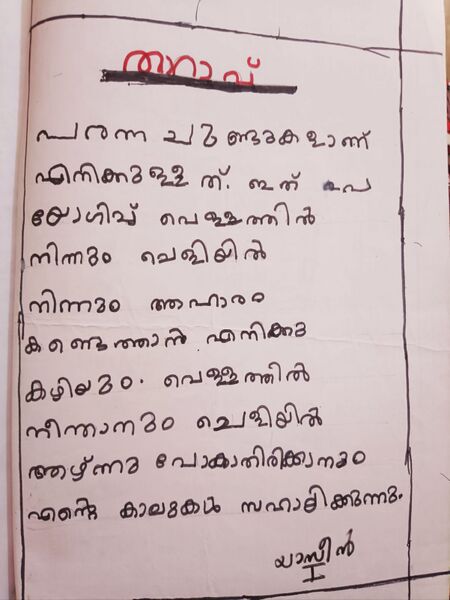 താറാവ്
പരന്ന ചുണ്ടുകളാണ്
എനിക്കുള്ളത്. ഇത് ഉപ
യോഗിച്ച് വെള്ളത്തിൽ
നിന്നും ചെളിയിൽ
നിന്നും ആഹാരം
കണ്ടെത്താൻ എനിക്കു
കഴിയും. വെള്ളത്തിൽ
നീന്താനും ചെളിയിൽ
ആഴ്ന്നു പോകാതിരിക്കാനും
എന്റെ കാലുകൾ സഹായിക്കുന്നു.
യാസീൻ
I